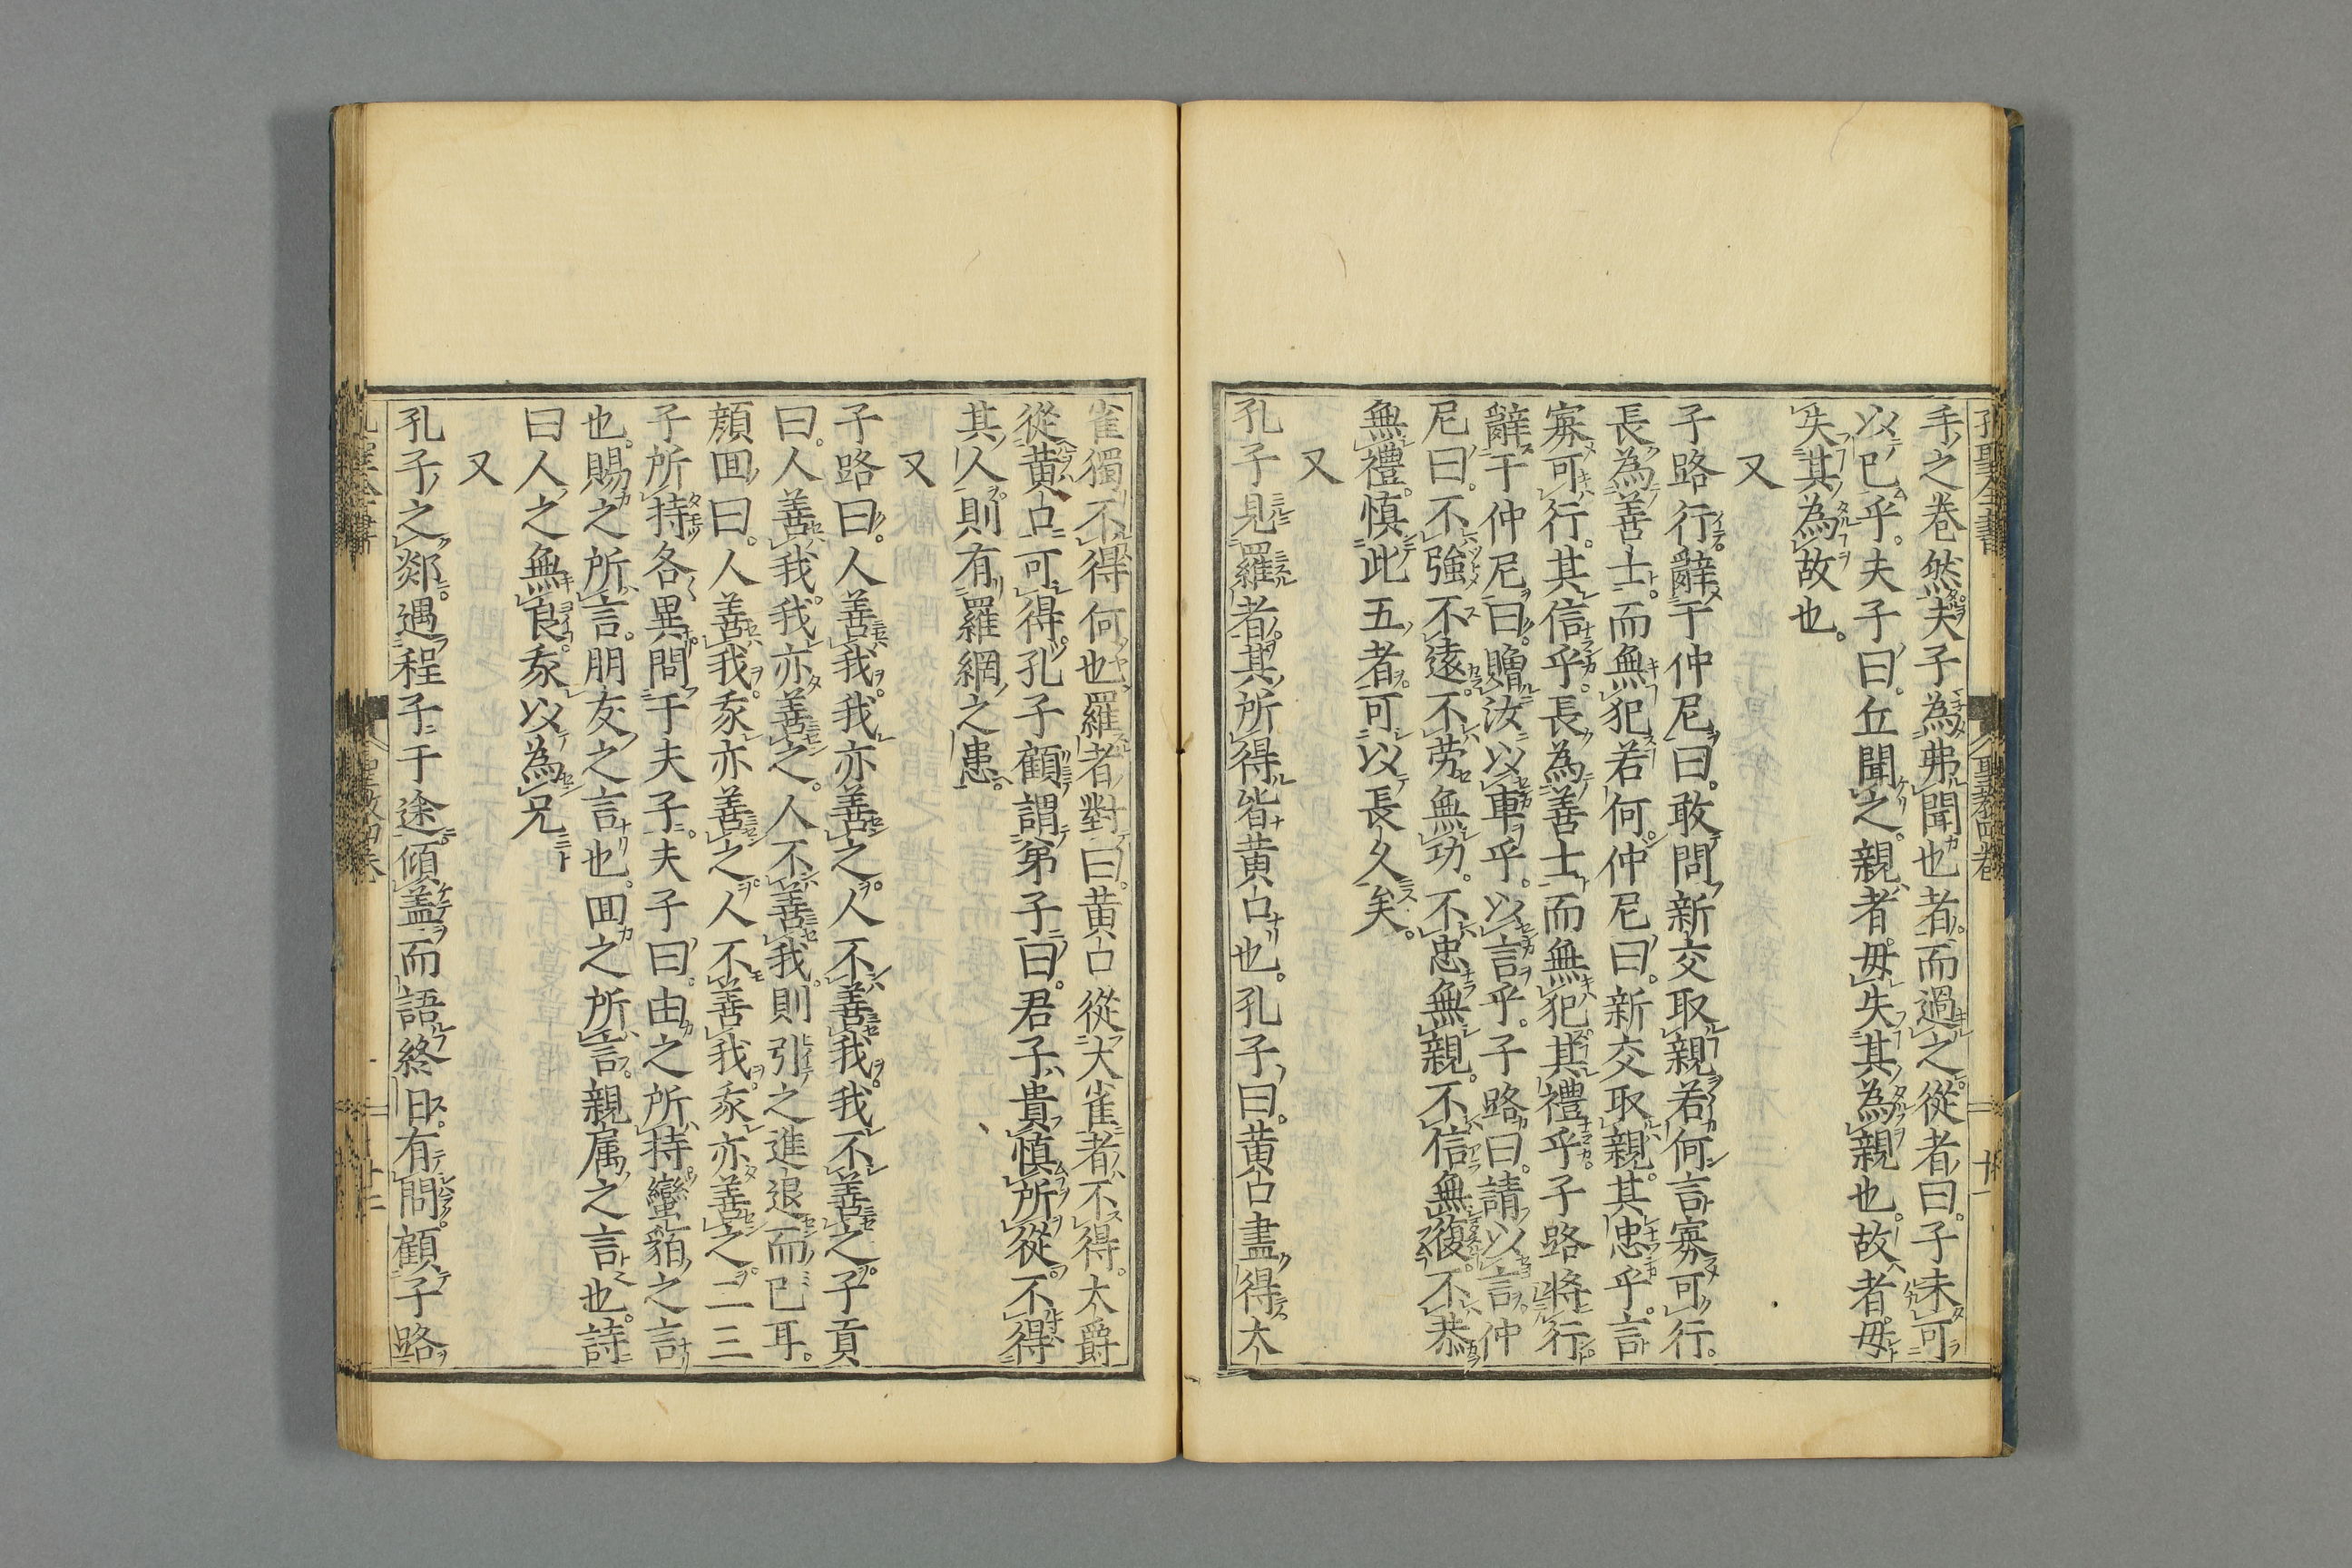 孔聖全書
聖教四卷
十一
手之卷然夫子為弗聞也者而過之從者曰子未可
以已乎。夫子曰。丘聞之。親者毋失其為親也。故者毋
失其為故也。
又
子路行辭于仲尼曰。敢問新交取親若何言寡可行。
長為善士。而無犯若何。仲尼曰。新交取親。其忠乎。言
寡可行。其信乎。長為善士而無犯其禮乎。子路將行
辭于仲尼曰。贈汝以車乎。以言乎。子路曰。請以言。仲
尼曰。不強不遠。不劳無功。不忠無親。不信無復。不恭
無禮。慎此五者。可以長久矣。
又
孔子見羅者。其所得皆黄口也。孔子曰。黄口盡得大
雀獨不得何也羅者對曰。黄口從大雀者不得。大爵
從黄口可得。孔子顧謂弟子曰。君子貴慎所從。不得
其人則有羅網之患。
又
子路曰。人善我。我亦善之。人不善我。我不善之。子貢
曰。人善我。我亦善之。人不善我。則引之進退而已耳。
顔囬曰。人善我。我亦善之。人不善我。我亦善之。二三
子所持各異。問于夫子。夫子曰。由之所持。蠻貊之言
也。賜之所言。朋友之言也。囬之所言。親属之言也。詩
曰人之無良。我以為兄
又
孔子之郯。遇程子于途。傾盖而語終日。有問。顧子路
聖教四卷
十二